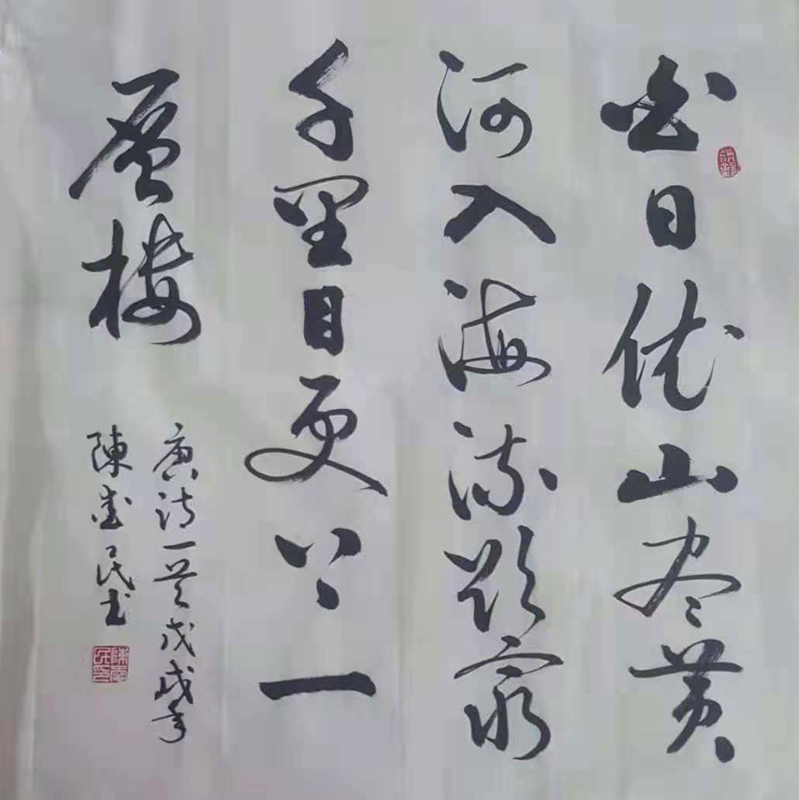 白日依山尽黄
河入海流欲穷
千里目更上一
層樓
唐诗一首戊戌年
陳民书